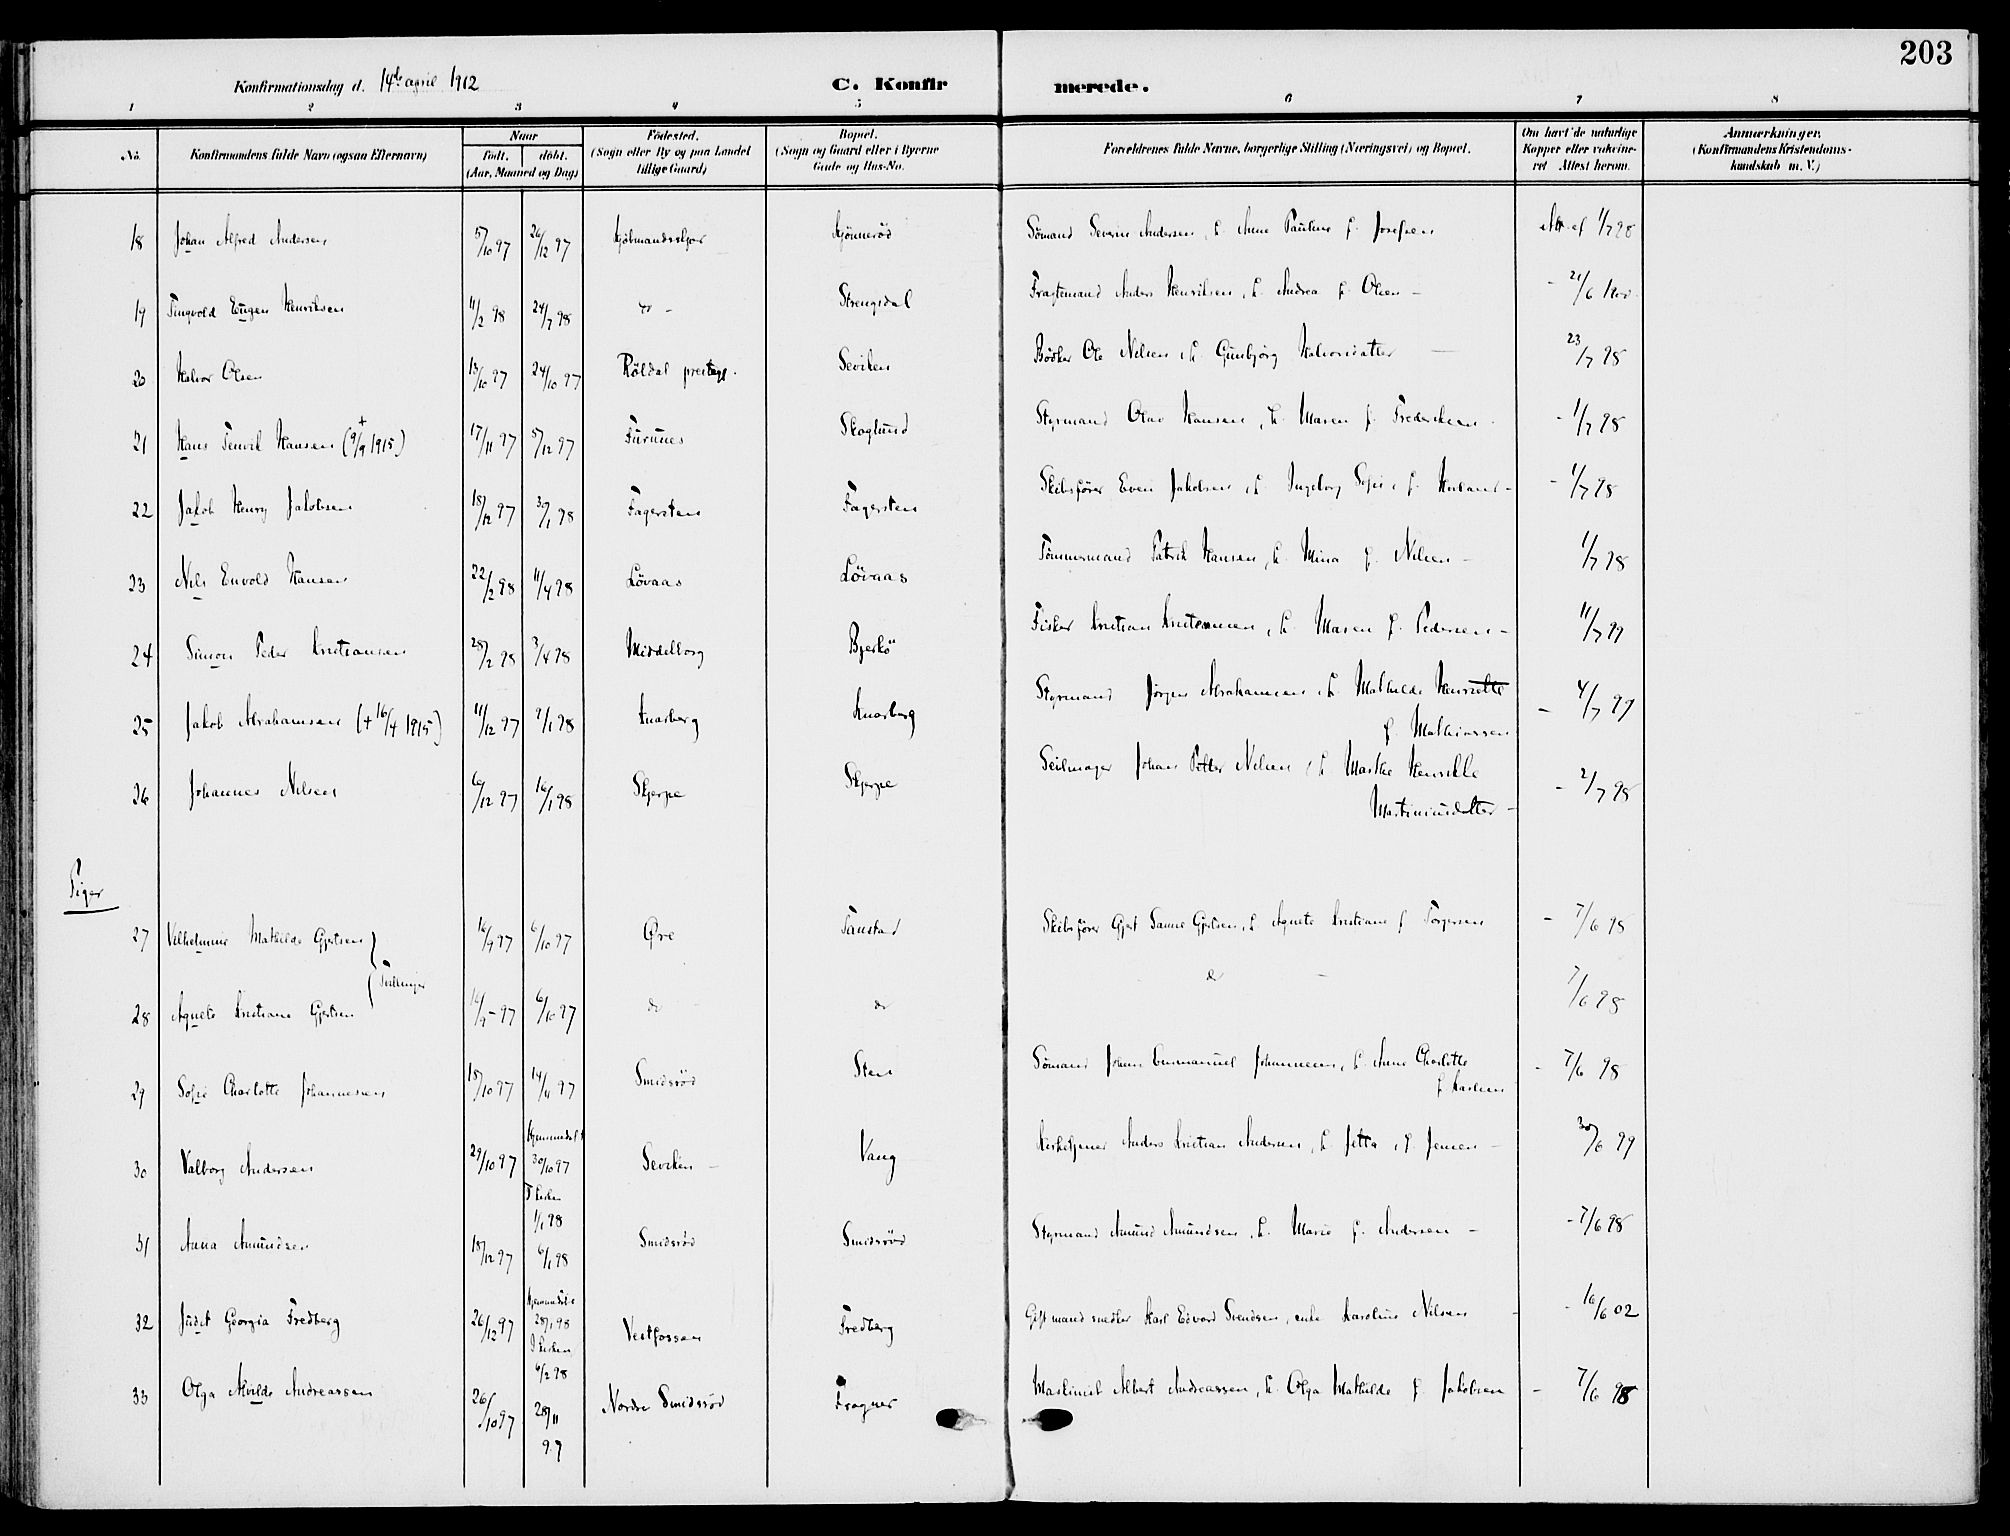 203
Konfirmationsdag d. 14de april 1912 C. Konfirmerede.
1 2 3 4 5 6 7 8
No. Konfirmandens fulde Navn (ogsaa Efternavn) Naar født. døbt. (Aar, Maaned og Dag) Fødested. (Sogn eller By og paa Landet tillige Gaard) Bopæl. (Sogn og Gaard eller i Byerne Gade og Hus-No. Forældrenes fulde Navne, borgerlige Stilling (Næringsvei) og Bopæl. Om havt de naturlige Kopper eller vakcineret Attest herom. Anmærkninger. (Konfirmandens Kristendomskundskab m. V.)
18 Johan Alfred Andersen 5/10 97 26/12 97 Kjøbmandsskjær Sømand Severin Andersen, h. Anne Pauline f. Josefsen 1/7 98
19 Tingvold Eugen Henriksen 11/2 98 24/7 98 do - Strengsdal Fragtemand Anders Henriksen, h. Andrea f. Olsen - - 21/6 1900
20 Halvor Olsen 13/10 97 24/10 97 Røldal prestegj. Seviken Bødker Ole Nilsen, h. Gunbjørg Halvorsdatter - 23/7 98
21 Hans Tenvik Hansen († 9/9 1915) 17/11 97 5/12 97 Furunes Skoglund Styrmand Olav Hansen, h. Maren f. Frederiksen - 1/7 98
22 Jakob Henry Jakobsen 18/12 97 30/1 98 Fagersten Fagersten Skibsfører Even Jakobsen, h. Ingeborg Sofie, f. - 1/7 98
23 Nils Envold Hansen 22/2 98 11/4 98 Løvaas Løvaas Tømmermand Patrik Hansen, h. Mina f. Nilsen - 1/7 98
24 Simon Peder Kristiansen 28/2 98 3/4 98 Middelborg Bjerkø Fisker Kristian Kristiansen, h. Maren f. Pedersen - 11/7 99
25 Jakob Abrahamsen († 16/4 1915) 11/12 97 9/1 98 Knarberg Knarberg Styrmand Jørgen Abrahamsen, h. Mathilde Henriette - 4/7 99
f. Mathiassen
26 Johannes Nilsen 6/12 97 16/1 98 Skjerpe Skjerpe Seilmager Johan Petter Nilsen, h. Marthe Henrikke - 2/7 98
Martiniusdatter -
Piger
27 Vilhelmine Mathilde Gjertsen 16/9 97 6/10 97 Øre Skibsfører Gjert Gjertsen, h. Agnete Kristiane f. Torgersen - 7/6 98
Tvillinger
28 Agnete Kristiane Gjertsen 16/9 97 6/10 97 do do do - 7/6 98
29 Sofie Charlotte Johannessen 18/10 97 14/11 97 Smidsrød Sten Sømand Johan Emmanuel Johannesen, h. Anne Charlotte - 7/6 98
f. Karlsen
30 Valborg Andersen 29/10 97 Hjemmedøbt 30/10 97 I kirken 1/1 98 Seviken - Vang Kirketjener Anders Kristian Andersen, h. Jetta, f. Jensen - 30/6 99
31 Anna Amundsen 18/12 97 6/1 98 Smidsrød Smidsrød Styrmand Amund Amundsen, h. Marie f. Andersen - - 7/6 98
32 Judit Georgia Fredberg 26/12 97 Hjemmedøbt 28/1 98 I kirken 6/2 98 Vestfossen Fredberg Gift mand snedker Karl Edvard Svendsen, enke Karoline Nilsen - 16/6 02
33 Olga Alvilde Andreassen 26/10 97 28/11 97 Nordre Smidsrød Fragner Maskinist Albert Andreassen, h. Olga Mathilde f. Jakobsen - 7/6 98